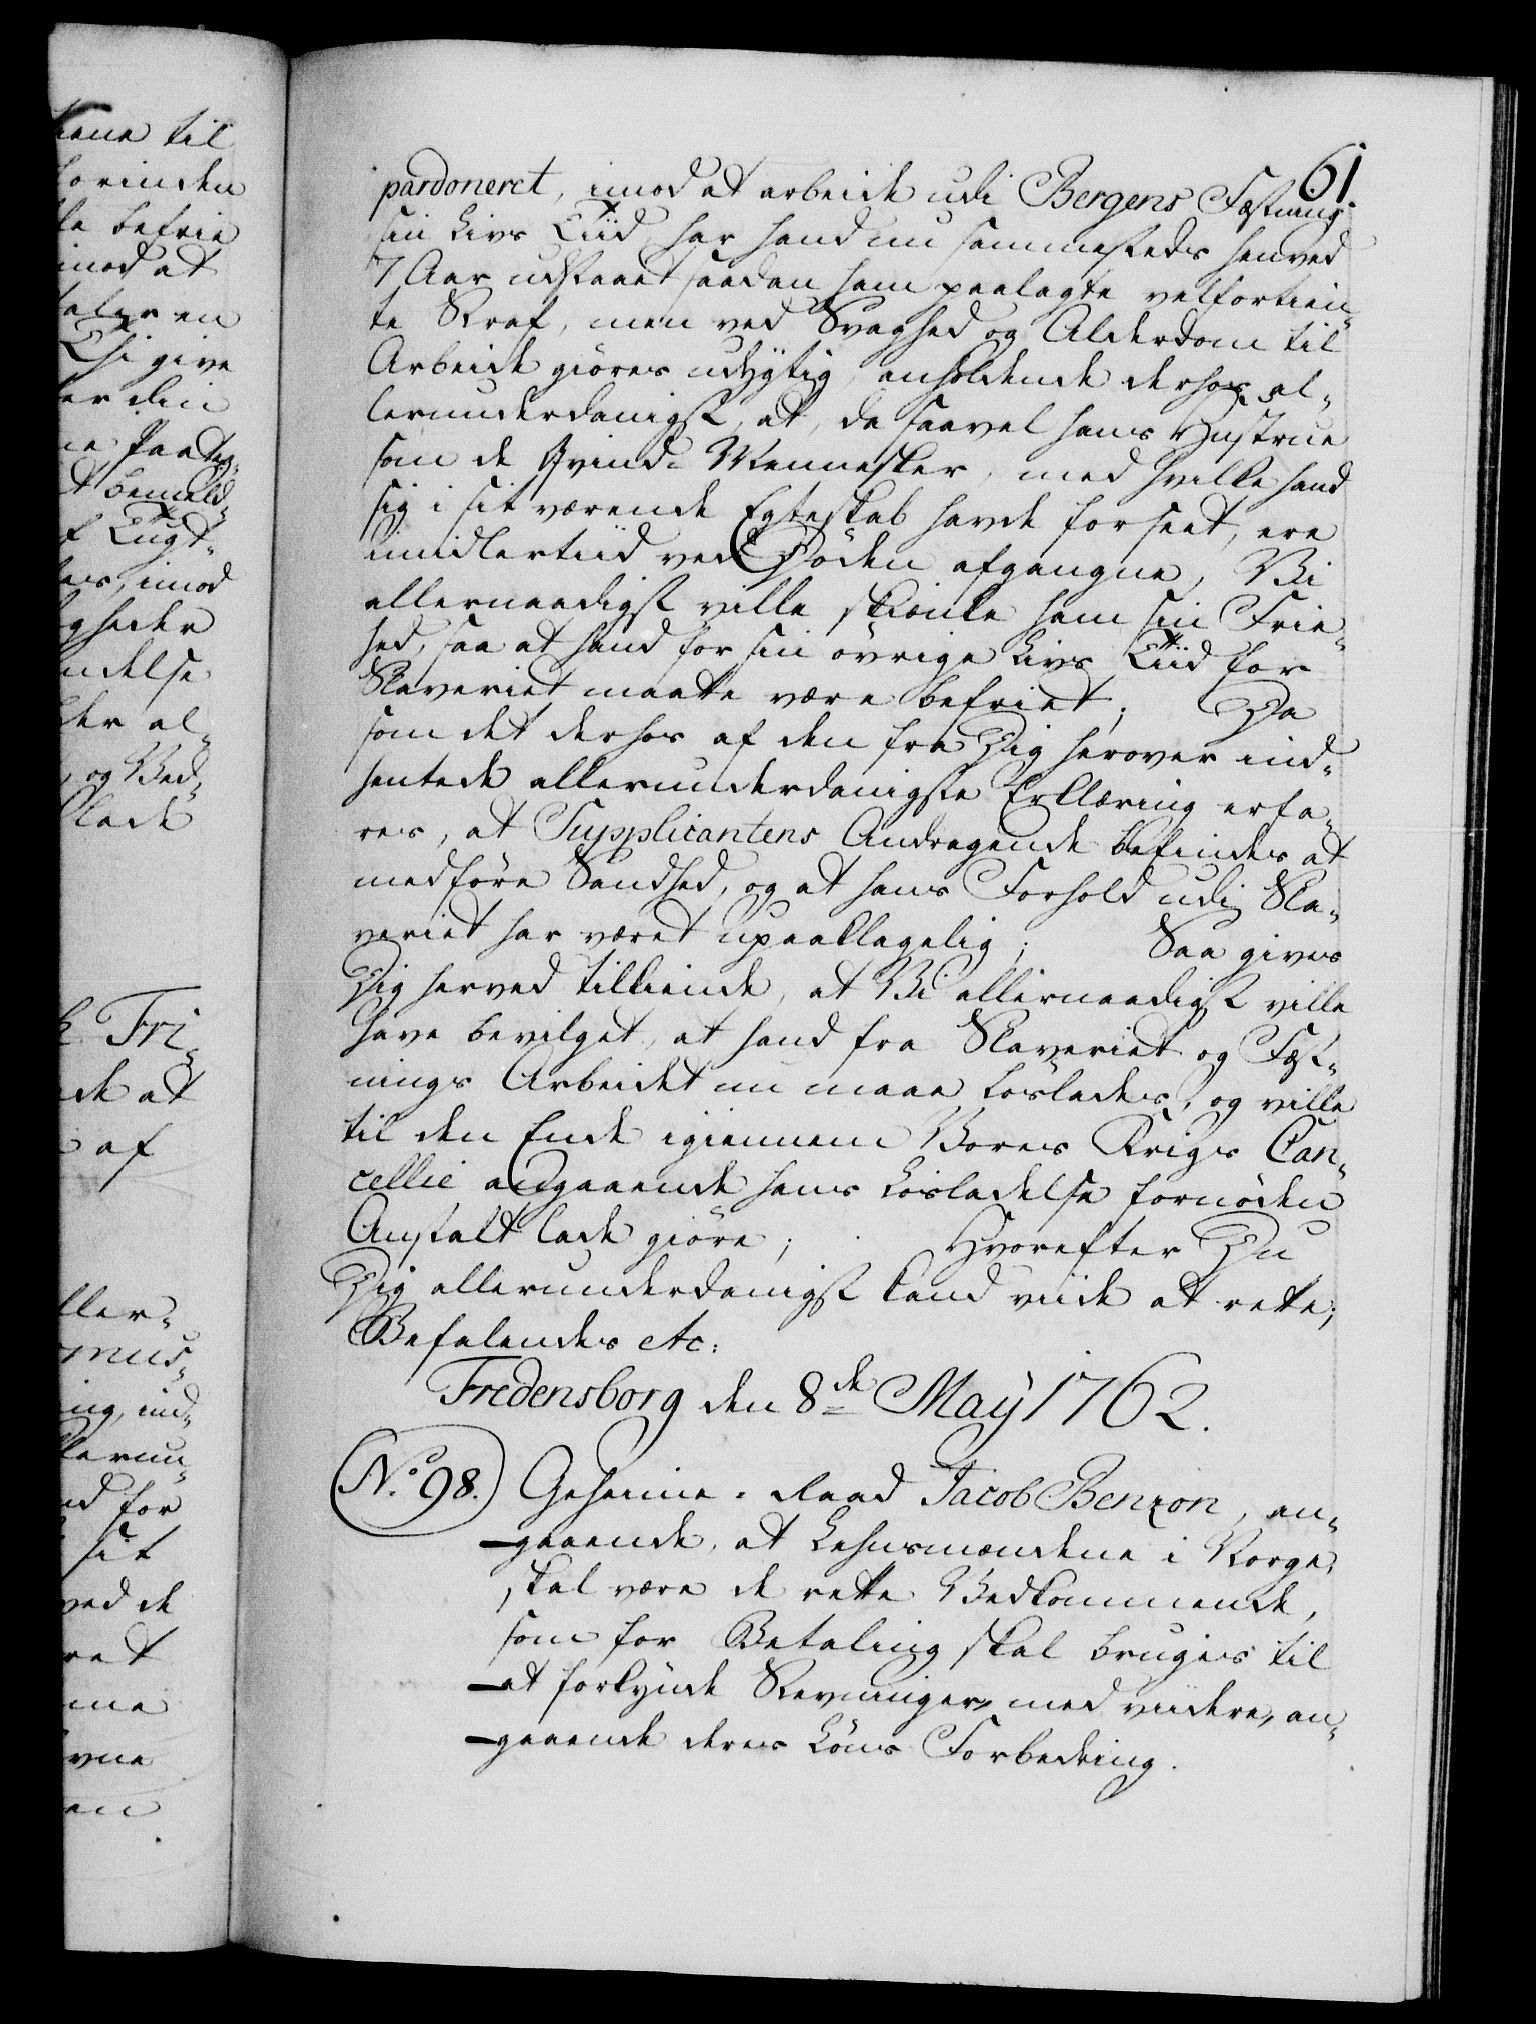 61.
pardoneret, imod at arbeide udi Bergens Fæstning
sin Livs Tiid har hand nu sammesteds henved
7 Aar udstaaet saadan ham paalagte velfortien¬
te Straf, men ved Svaghed og Alderdom til
Arbeide giøres udygtig, anholdende derhos al¬
lerunderdanigst, at, da saavel hans Hustrue
som de Qvind-Mennesker, med hvilke hand
sig i sit værende Egteskab havde forseet, ere
imidlertiid ved Døden afgangne, Vi
allernaadigst ville skienke ham sin Frie¬
hed, saa at hand for sin øvrige Livs Tiid for
Slaveriet maatte være befriet; Da
som det derhos af den fra Dig herover ind¬
hentede allerunderdanigste Erklæring erfa¬
res, at Supplicantens Andragende befindes at
medføre Sandhed, og at hans Forhold udi Sla¬
veriet har været upaaklagelig; Saa gives
Dig herved tilkiende, at Vi allernaadigst ville
have bevilget, at hand fra Slaveriet og Fæst¬
nings Arbeidet nu maae løslades, og ville
til den Ende igiennem Vores Krigs Can¬
cellie angaaende hans Løsladelse fornøden
Anstalt lade giøre; Hvorefter Du
Dig allerunderdanigst kand viide at rette;
Befalendes etc:
Fredensborg den 8de May 1762.
No. 98. Geheime-Raad Jacob Benzon, an¬
gaaende, at Lehnsmændene i Norge,
skal være de rette Vedkommende,
som for Betaling skal bruges til
at forkynde Stevninger, med viidere, an¬
gaaende deres Løns Forbedring.